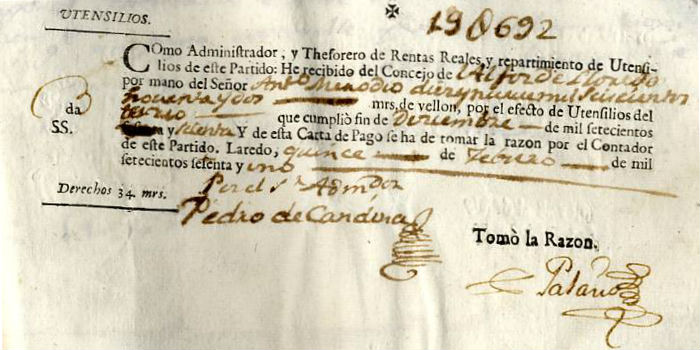 UTENSILIOS.
✠ 19 0 692
COmo Administrador, y Thesorero de Rentas Reales, y repartimiento de Utensi-
lios de este Partido: He recibido del Concejo de Alfoz de Lloredo
por mano del Señor Antto diez y nueve mil seiscientos
nobenta y dos mrs. de vellon, por el efecto de Utensilios del
da
terzio que cumpliò fin de Diziembre de mil setecientos
SS.
y sesenta Y de esta Carta de Pago se ha de tomar la razon por el Contador
de este Partido. Laredo, quince de Febrero de mil
setecientos sesenta y uno
Por el Sr Admdor
Derechos 34. mrs.
Pedro de Candina
Tomò la Razon.
Palacio